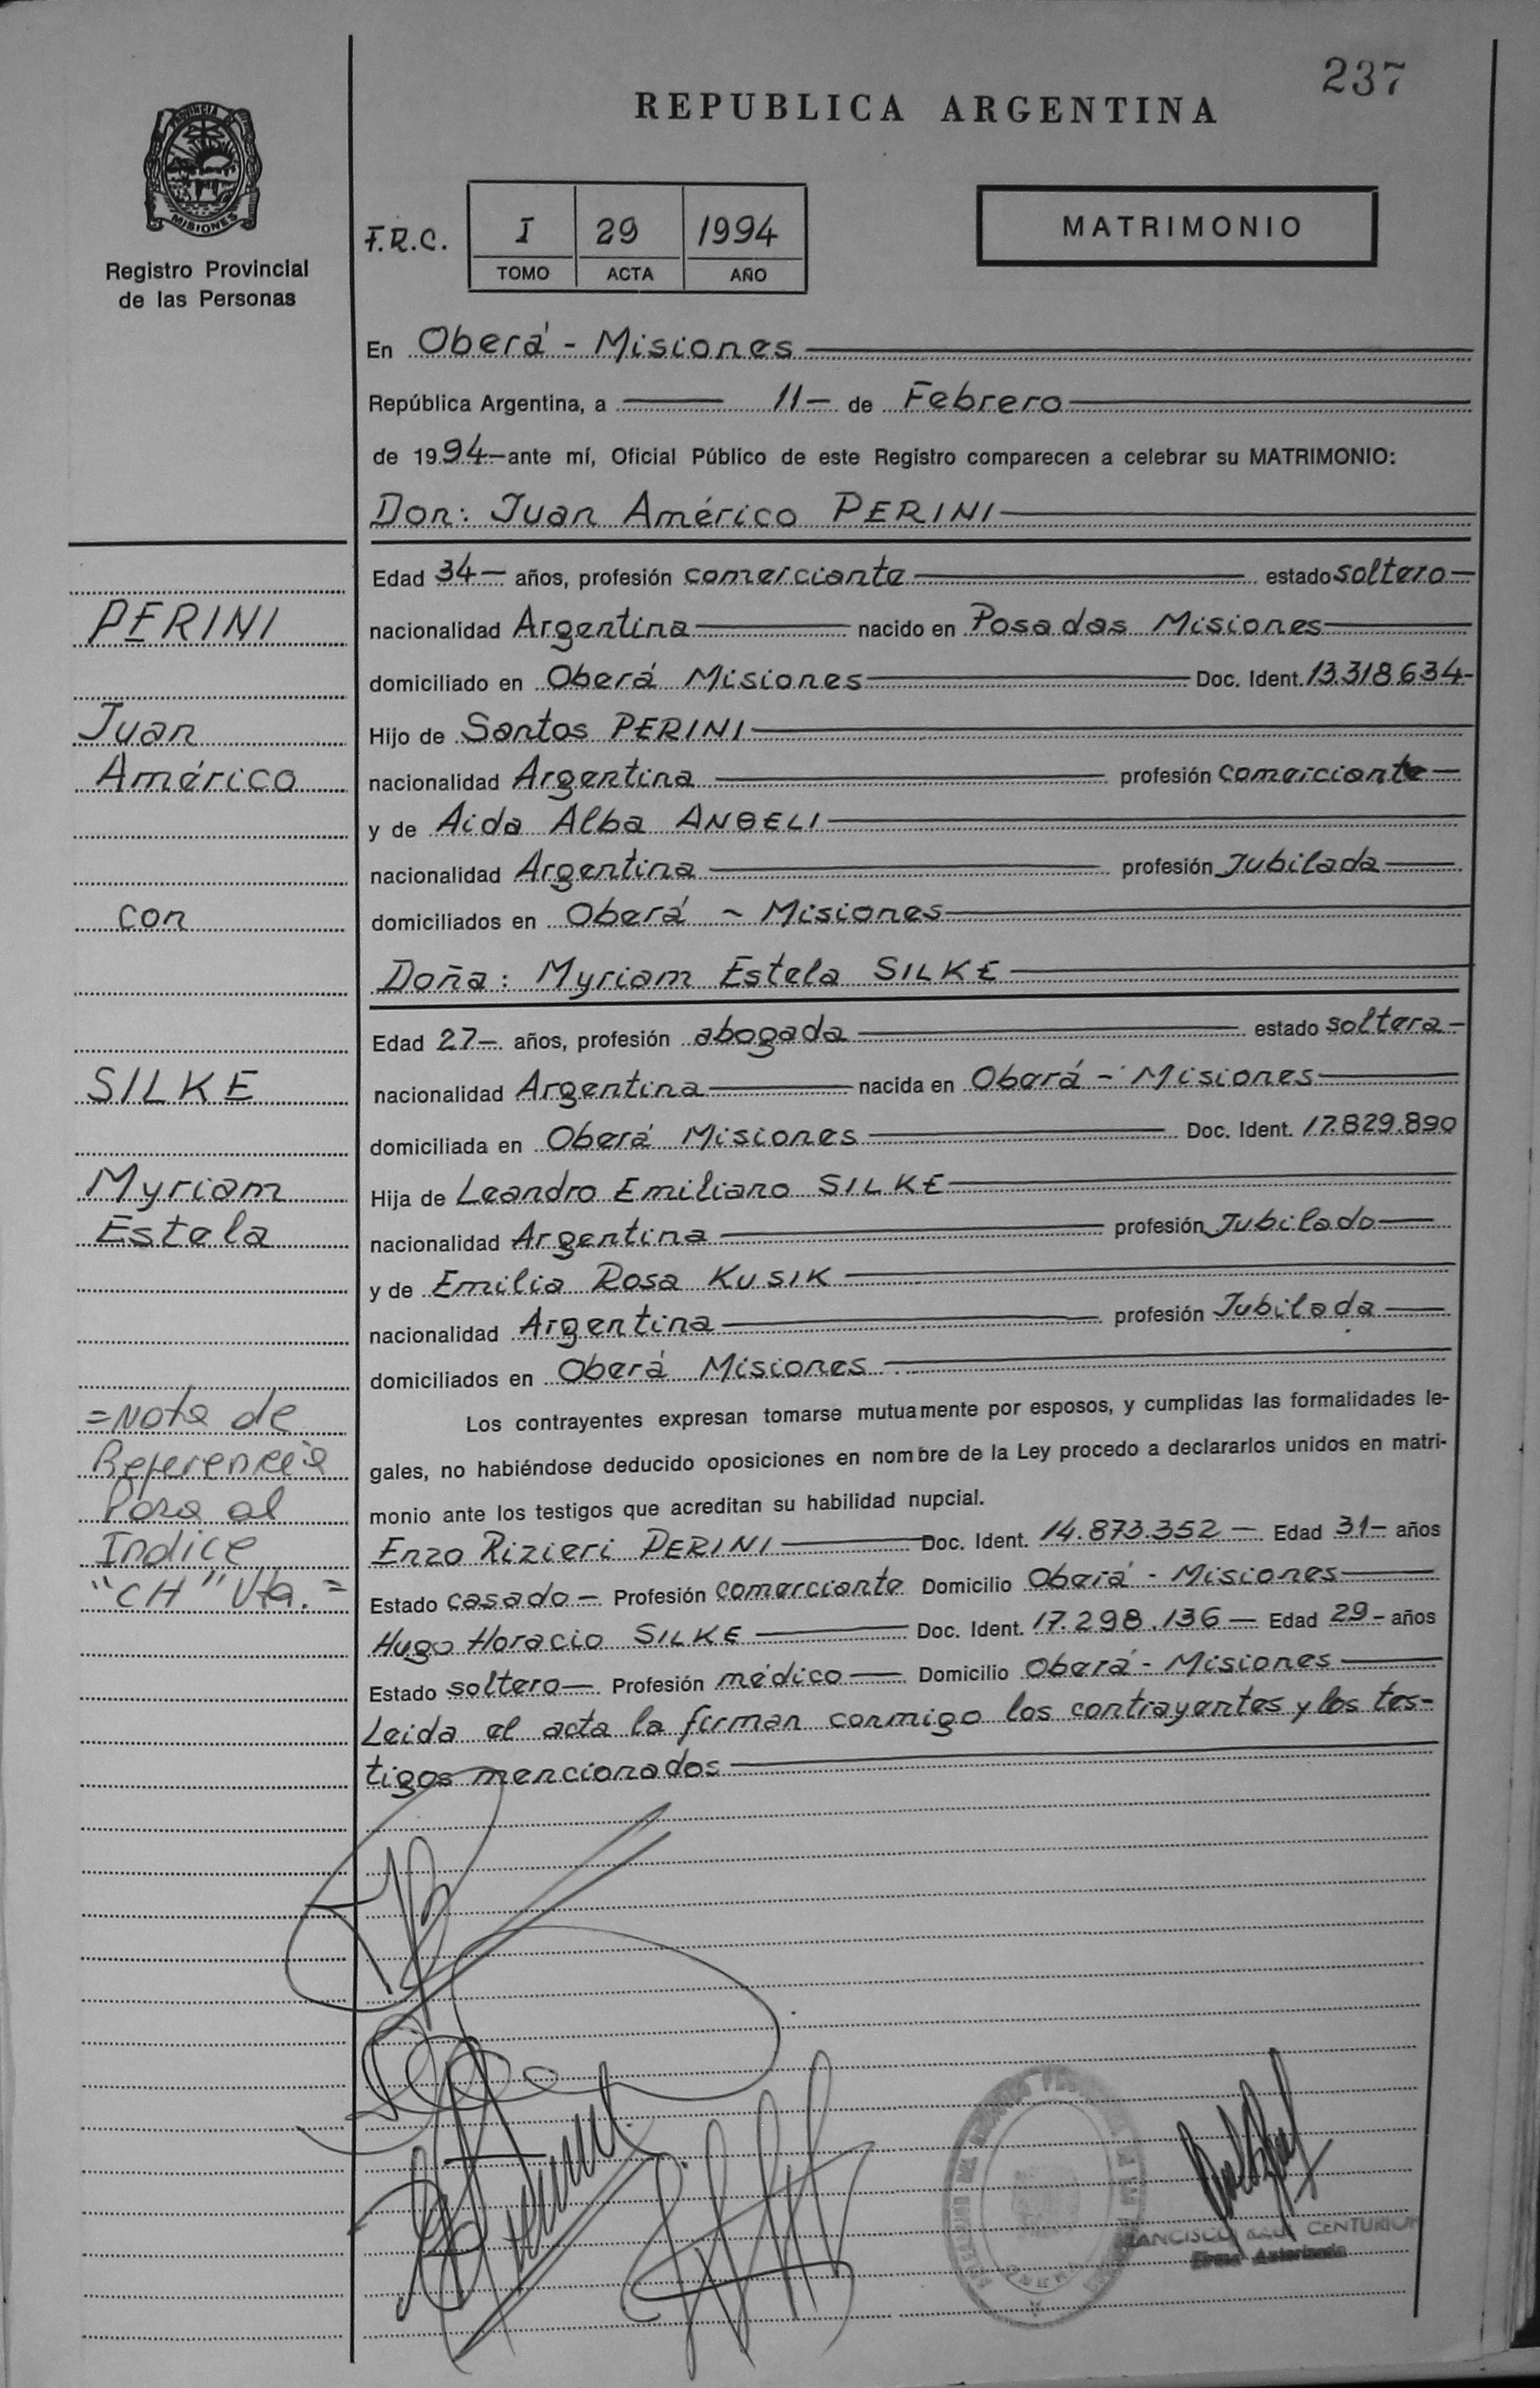 237
REPUBLICA ARGENTINA
PROVINCIA DE
MISIONES
Registro Provincial
de las Personas
F.R.C. I 29 1994
TOMO ACTA AÑO
MATRIMONIO
En Oberá - Misiones
República Argentina, a 11- de Febrero
de 1994- ante mí, Oficial Público de este Registro comparecen a celebrar su MATRIMONIO:
Don: Juan Américo PERINI
Edad 34- años, profesión comerciante estado soltero-
nacionalidad Argentina nacido en Posadas Misiones
domiciliado en Oberá Misiones Doc. Ident. 13.318.634-
Hijo de Santos PERINI
nacionalidad Argentina profesión comerciante-
y de Aida Alba ANGELI
nacionalidad Argentina profesión Jubilada
domiciliados en Oberá - Misiones
Doña: Myriam Estela SILKE
Edad 27- años, profesión abogada estado soltera-
nacionalidad Argentina nacida en Oberá - Misiones
domiciliada en Oberá Misiones Doc. Ident. 17.829.890
Hija de Leandro Emiliano SILKE
nacionalidad Argentina profesión Jubilado
y de Emilia Rosa KUSIK
nacionalidad Argentina profesión Jubilada
domiciliados en Oberá Misiones
Los contrayentes expresan tomarse mutuamente por esposos, y cumplidas las formalidades le-
gales, no habiéndose deducido oposiciones en nombre de la Ley procedo a declararlos unidos en matri-
monio ante los testigos que acreditan su habilidad nupcial.
Enzo Rizieri PERINI Doc. Ident. 14.873.352 - Edad 31- años
Estado casado - Profesión comerciante Domicilio Oberá - Misiones
Hugo Horacio SILKE Doc. Ident. 17.298.136 - Edad 29- años
Estado soltero- Profesión médico Domicilio Oberá - Misiones
Leida el acta la firman conmigo los contrayentes y los tes-
tigos mencionados
PERINI
Juan
Américo
con
SILKE
Myriam
Estela
=Nota de
Referencia
Para al
Indice
"CH" Vta.=
FRANCISCO RAUL CENTURION
Firma Autorizada